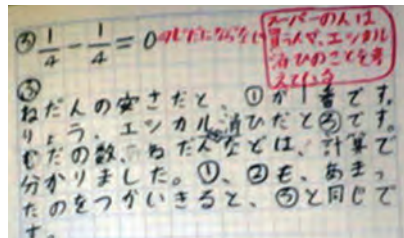 ③ 1/4 - 1/4 = 0 のむだにならない
スーパーの人は
買う人で、エシカル
消ひのことを考
えている
③
ねだんの安さだと、①が1番です。
りょう、エシカル消ひだと③です。
むだの数、ねだんなどは、計算で
分かりました。①、②も、あまっ
たのをつかいきると、③と同じで
す。